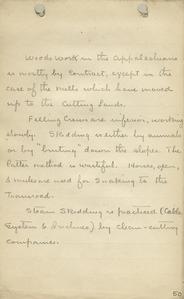 Woods work in the Appalachians
is mostly by contract, except in the
case of the mills which have moved
up to the Cutting Lands.
Felling Crews are inferior, working
slowly. Skidding is either by animals
or by "brutting" down the slopes. The
latter method is wasteful. Horses, oxen,
& mules are used for snaking to the
Tramroad.
Steam Skidding is practised (Cable
System & Inclines) by clean-cutting
companies.
50